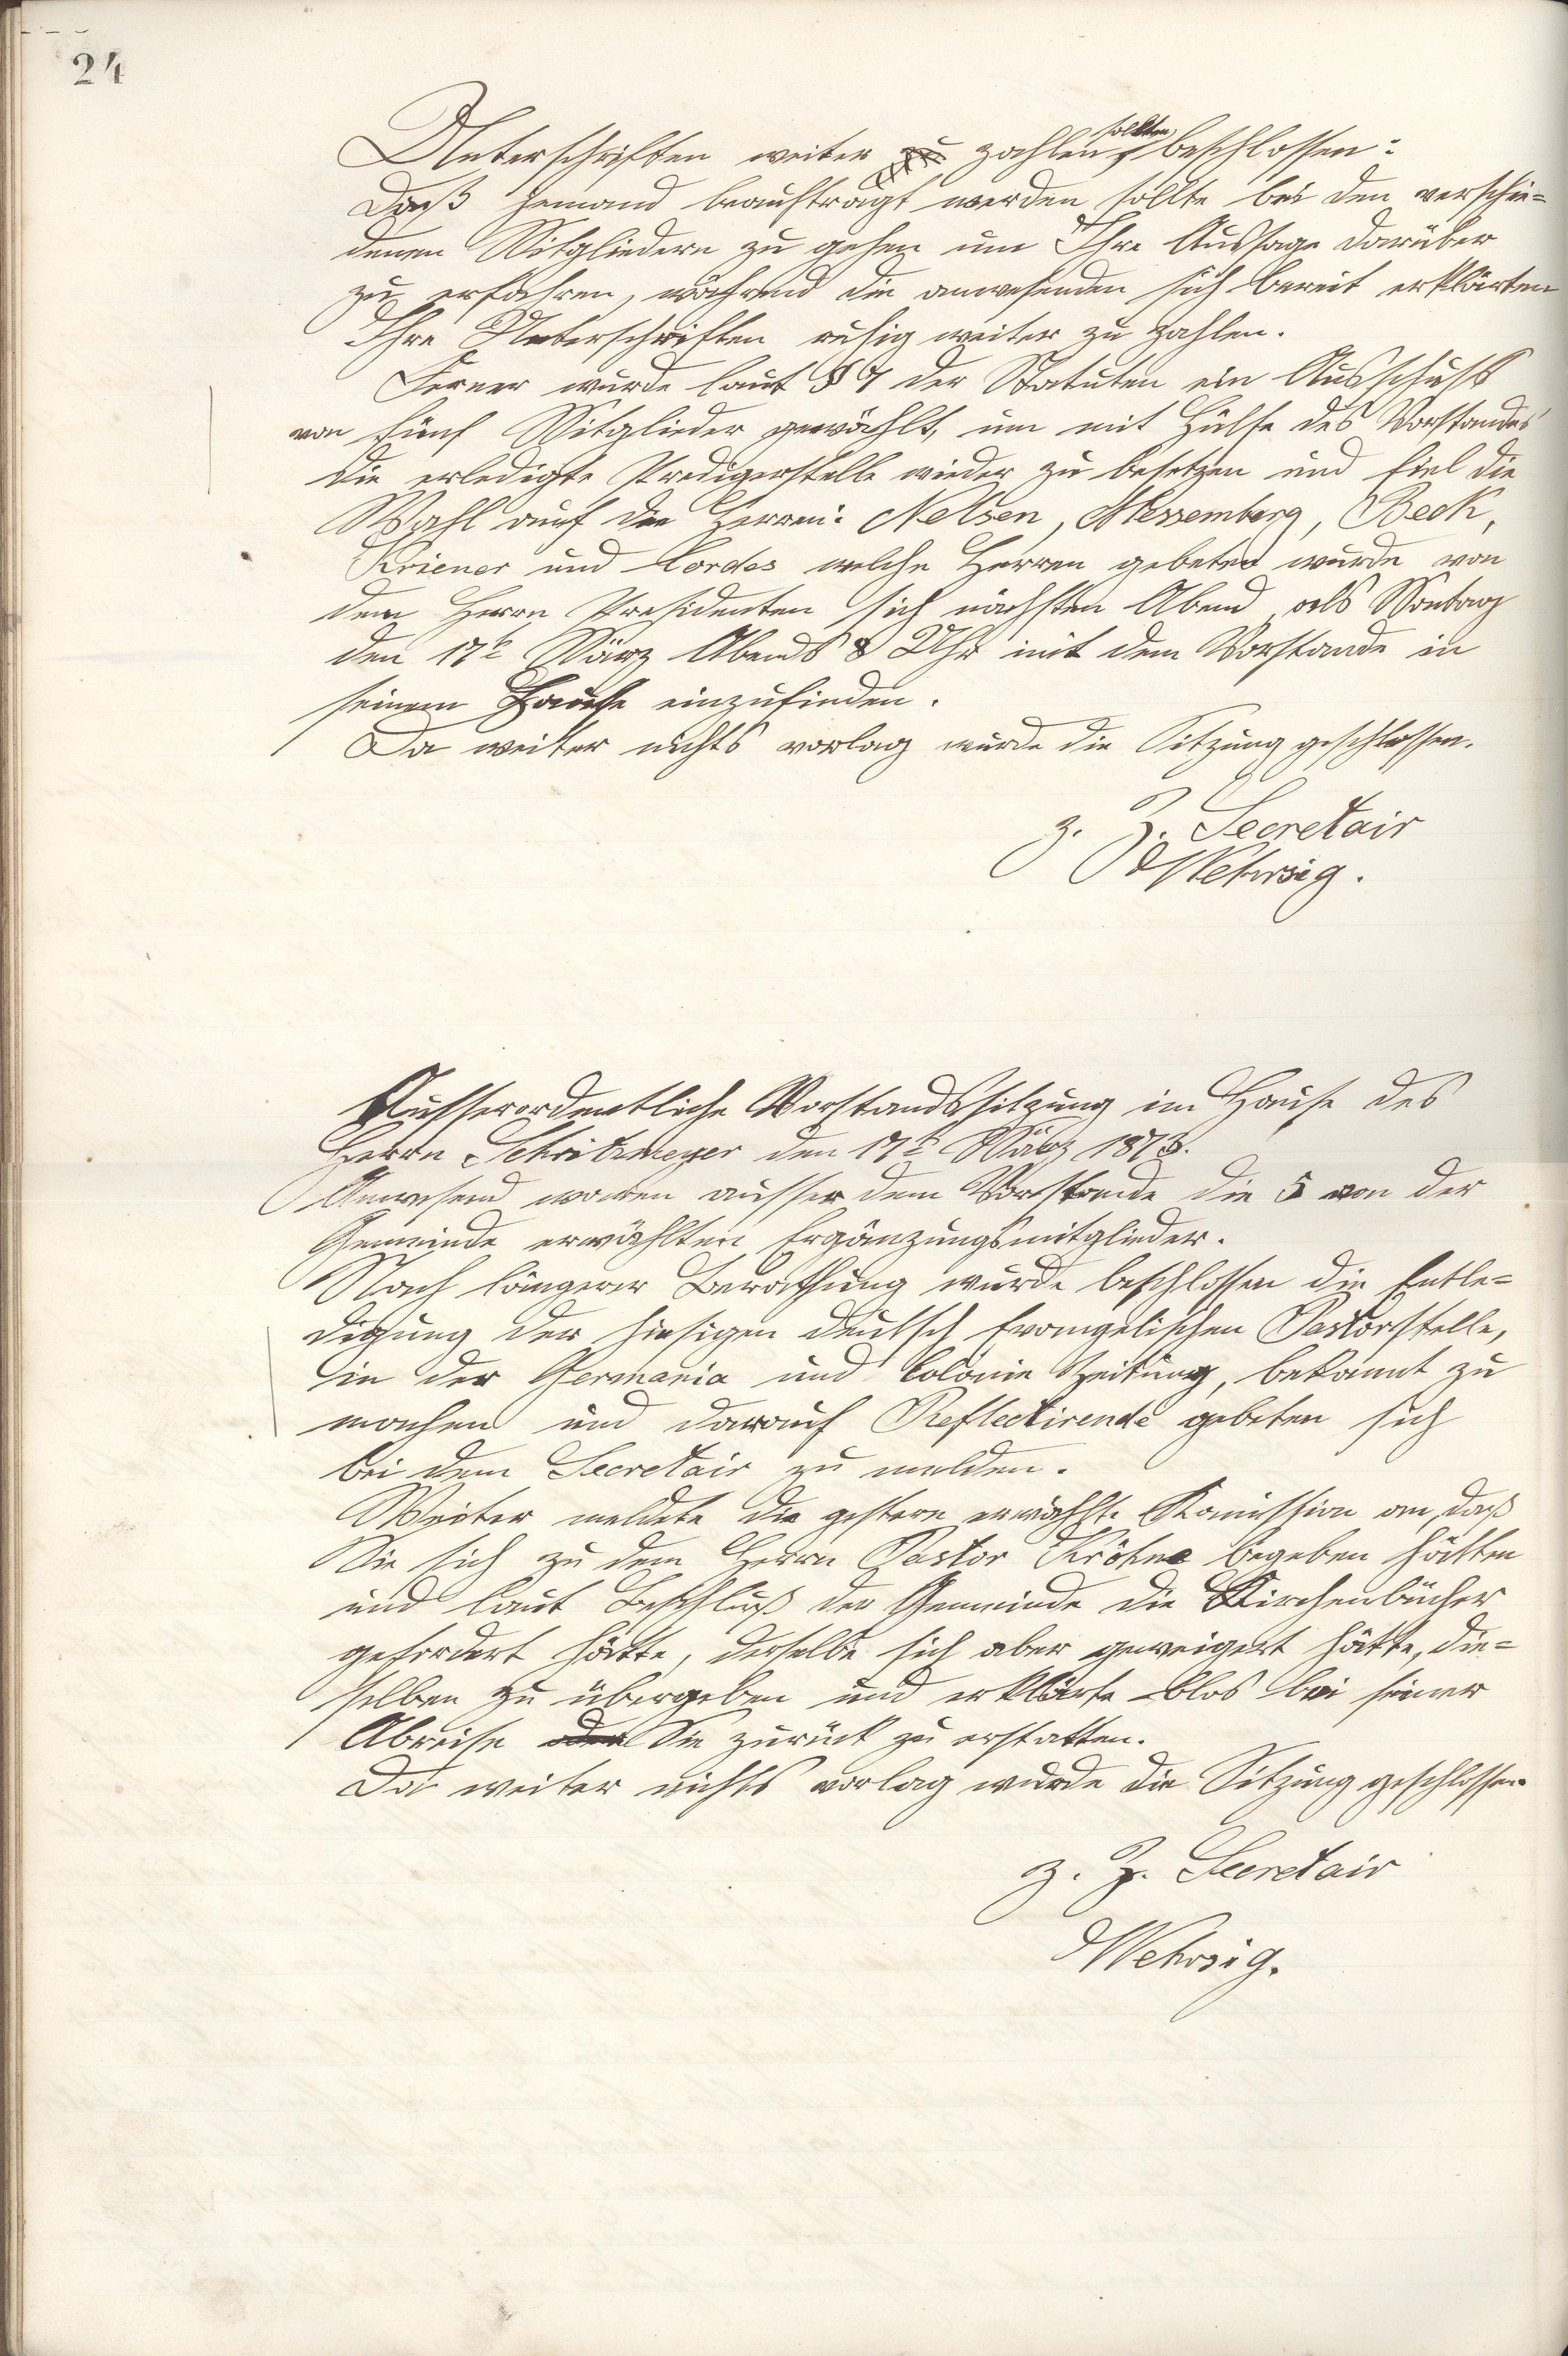 24
Unterschriften weiter zahlen sollten, beschlossen:
Daß Jemand beauftragt werden sollte bei den verschie=
denen Mitgliedern zu gehen um Ihre Aussage darüber
zu erfahren, während die anwesenden sich bereit erklärten
Ihre Unterschriften ruhig weiter zu zahlen.
Ferner wurde laut § 7 der Statuten ein Ausschuß
von fünf Mitglieder gewählt, um mit Hülfe des Vorstandes
die erledigte Predigerstelle wieder zu besetzen und fiel die
Wahl auf die Herren: Nelsen, Messemberg, Beck,
Kriener und Cordes welche Herren gebeten wurde von
dem Herrn Presidenten sich nächsten Abend, als Montag
den 17t März Abends 8 Uhr mit dem Vorstande in
seinem Hause einzufinden.
Da weiter nichts vorlag wurde die Sitzung geschlossen.
z. Z. Secretair
Wehrsig.
Ausserordentliche Vorstandssitzung im Hause des
Herrn Schritzmeyer den 17t März 1873.
Anwesend waren ausser dem Vorstande die 5 von der
Gemeinde erwählten Ergänzungsmitglieder.
Nach längerer Berathung wurde beschlossen die Entle=
digung der hiesigen deutsch Evangelischen Pastorstelle,
in der Germania und Colonie Zeitung, bekannt zu
machen und darauf Reflectirende gebeten sich
bei dem Secretair zu melden.
Weiter meldete die gestern erwählte Komission an, daß
Sie sich zu dem Herrn Pastor Kröhne begeben hätten
und laut Beschluß der Gemeinde die Kirchenbücher
gefordert hätte, derselbe sich aber geweigert hätte, die=
selben zu übergeben und erklärte blos bei seiner
Abreise Sie zurück zu erstatten.
Da weiter nichts vorlag wurde die Sitzung geschlossen.
z. Z. Secretair
Wehrsig.